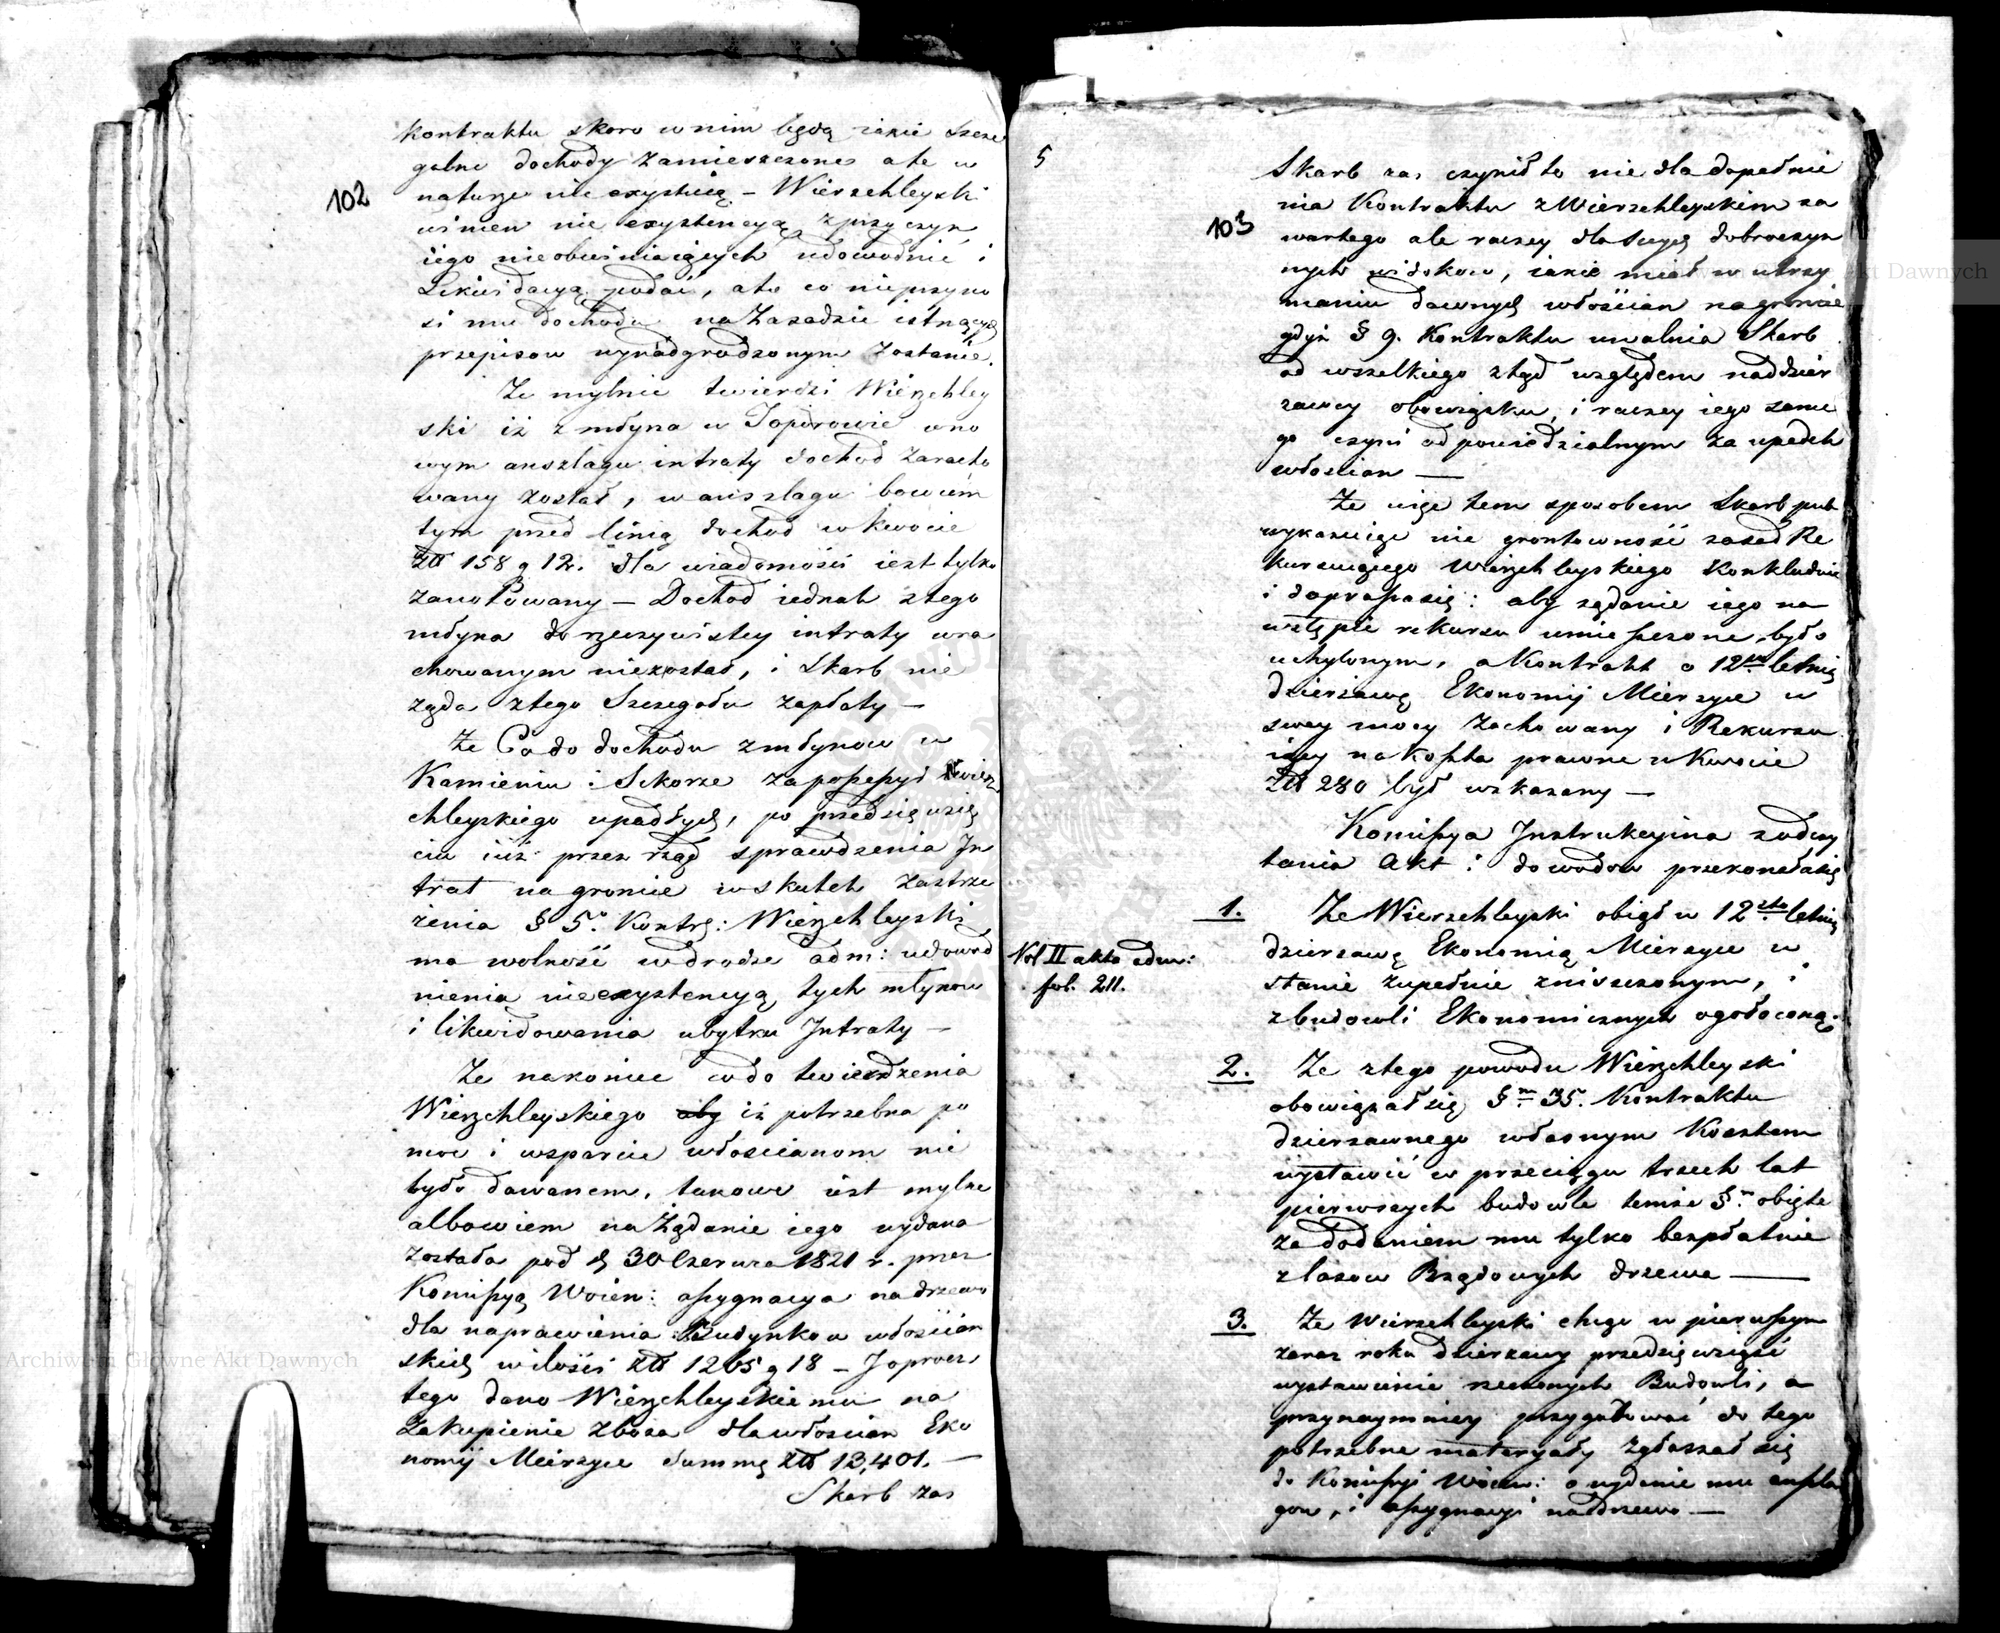 102
kontraktu skoro w nim będą iakie szcze
gulne dochody zamieszczone ale w
naturze nie exystuią – Wierzchleyski
winien nie exystencyą z przyczyn
iego nieobwiniaiących udowodnić i
Likwidacyą podać, a to co nieprzyno
si mu dochodu na Zasadzie istnących
przepisow wynadgrodzonym zostanie.
Że mylnie twierdzi Wierzchley
ski iż z młyna w Toporowie w no
wym anszlagu intraty dochod zaracho
wany został, w anszlagu bowiem
tym przed linią dochod w kwocie
złł 158 g 12. dla wiadomości iest tylko
zanotowany – Dochod iednak z tego
młyna do rzeczywistey intraty wra
chowanym niezostał, i Skarb nie
żąda z tego Szczegołu zapłaty –
Że Co do dochodu z młynow w
Kamieniu i Sikorze za possessyi Wierz
chleyskiego upadłych, po przedsięwzię
ciu iuż przez rząd sprawdzenia In
trat na groncie w skutek zastrze
żenia § 5o. Kontr: Wierzchleyski
ma wolność w drodze adm: udowod
nienia nieexystencyą tych młynow
i likwidowania ubytku Intraty –
Że nakoniec co do twierdzenia
Wierzchleyskiego aby iż potrzebna po
moc i wsparcie włoscianom nie
było dawanem, takowe iest mylne
albowiem na Żądanie iego wydana
została pod d 30 Czerwca 1821 r. przez
Komissyą Woiew: assygnacya na drzewo
dla naprawienia Budynkow włościan
skich w ilości złł 1265 g 18 – Joprocz
tego dano Wierzchleyskiemu na
Zakupienie zboża dla włościan Eko
nomij Mierzyce summę złł 13,401. –
Skarb zas
5
103
Skarb zas czynił to nie dla dopełnie
nia Kontraktu z Wierzchleyskim za
wartego ale raczey dla swych dobroczyn
nych widokow, iakie miał w utrzy
maniu dawnych włościan na groncie
gdyż § 9. Kontraktu uwalnia Skarb
od wszelkiego ztąd względem naddzier
żawcy obowiązku, i raczey iego same
go czyni odpowiedzialnym za upadek
włoscian –
Że więc tem sposobem Skarb pub
wykazuiąc nie grontowność zasad Re
kursuiącego Wierzchleyskiego Konkluduie
i doprassasię: aby żądanie iego na
wstępie rekursu umieszczone, było
uchylonym, a Kontrakt o 12to letnią
dzierżawę Ekonomij Mierzyce w
swey mocy zachowany i Rekursu
iący na Koszta prawne w Kwocie
Złł 280 był wskazany –
Komissya Instrukcyina z odczy
tania Akt i dowodow przekonałasię
1. Że Wierzchleyski obiął w 12sto letnią
dzierżawę Ekonomią Mierzyce w
stanie zupełnie zniszczonym, i
z budowli Ekonomicznych ogołoconą.
Vol II akta adm:
fol. 211.
2. Że z tego powodu Wierzchleyski
obowiązał się § m. 35. Kontraktu
dzierżawnego własnym Kosztem
wystawić w przeciągu trzech lat
pierwszych budowle temże § m. obięte
za dodaniem mu tylko bezpłatnie
z lasow Rządowych drzewa –
3. Że Wierzchleyski chcąc w pierwszym
zaraz roku dzierżawy przedsięwziąść
wystawienie rzeczonych Budowli, a
przynaymniey przygotować do tego
potrzebne materyały zgłaszał się
do Komissyi Woiew: o wydanie mu anszla
gow, i assygnacyi na drzewo –